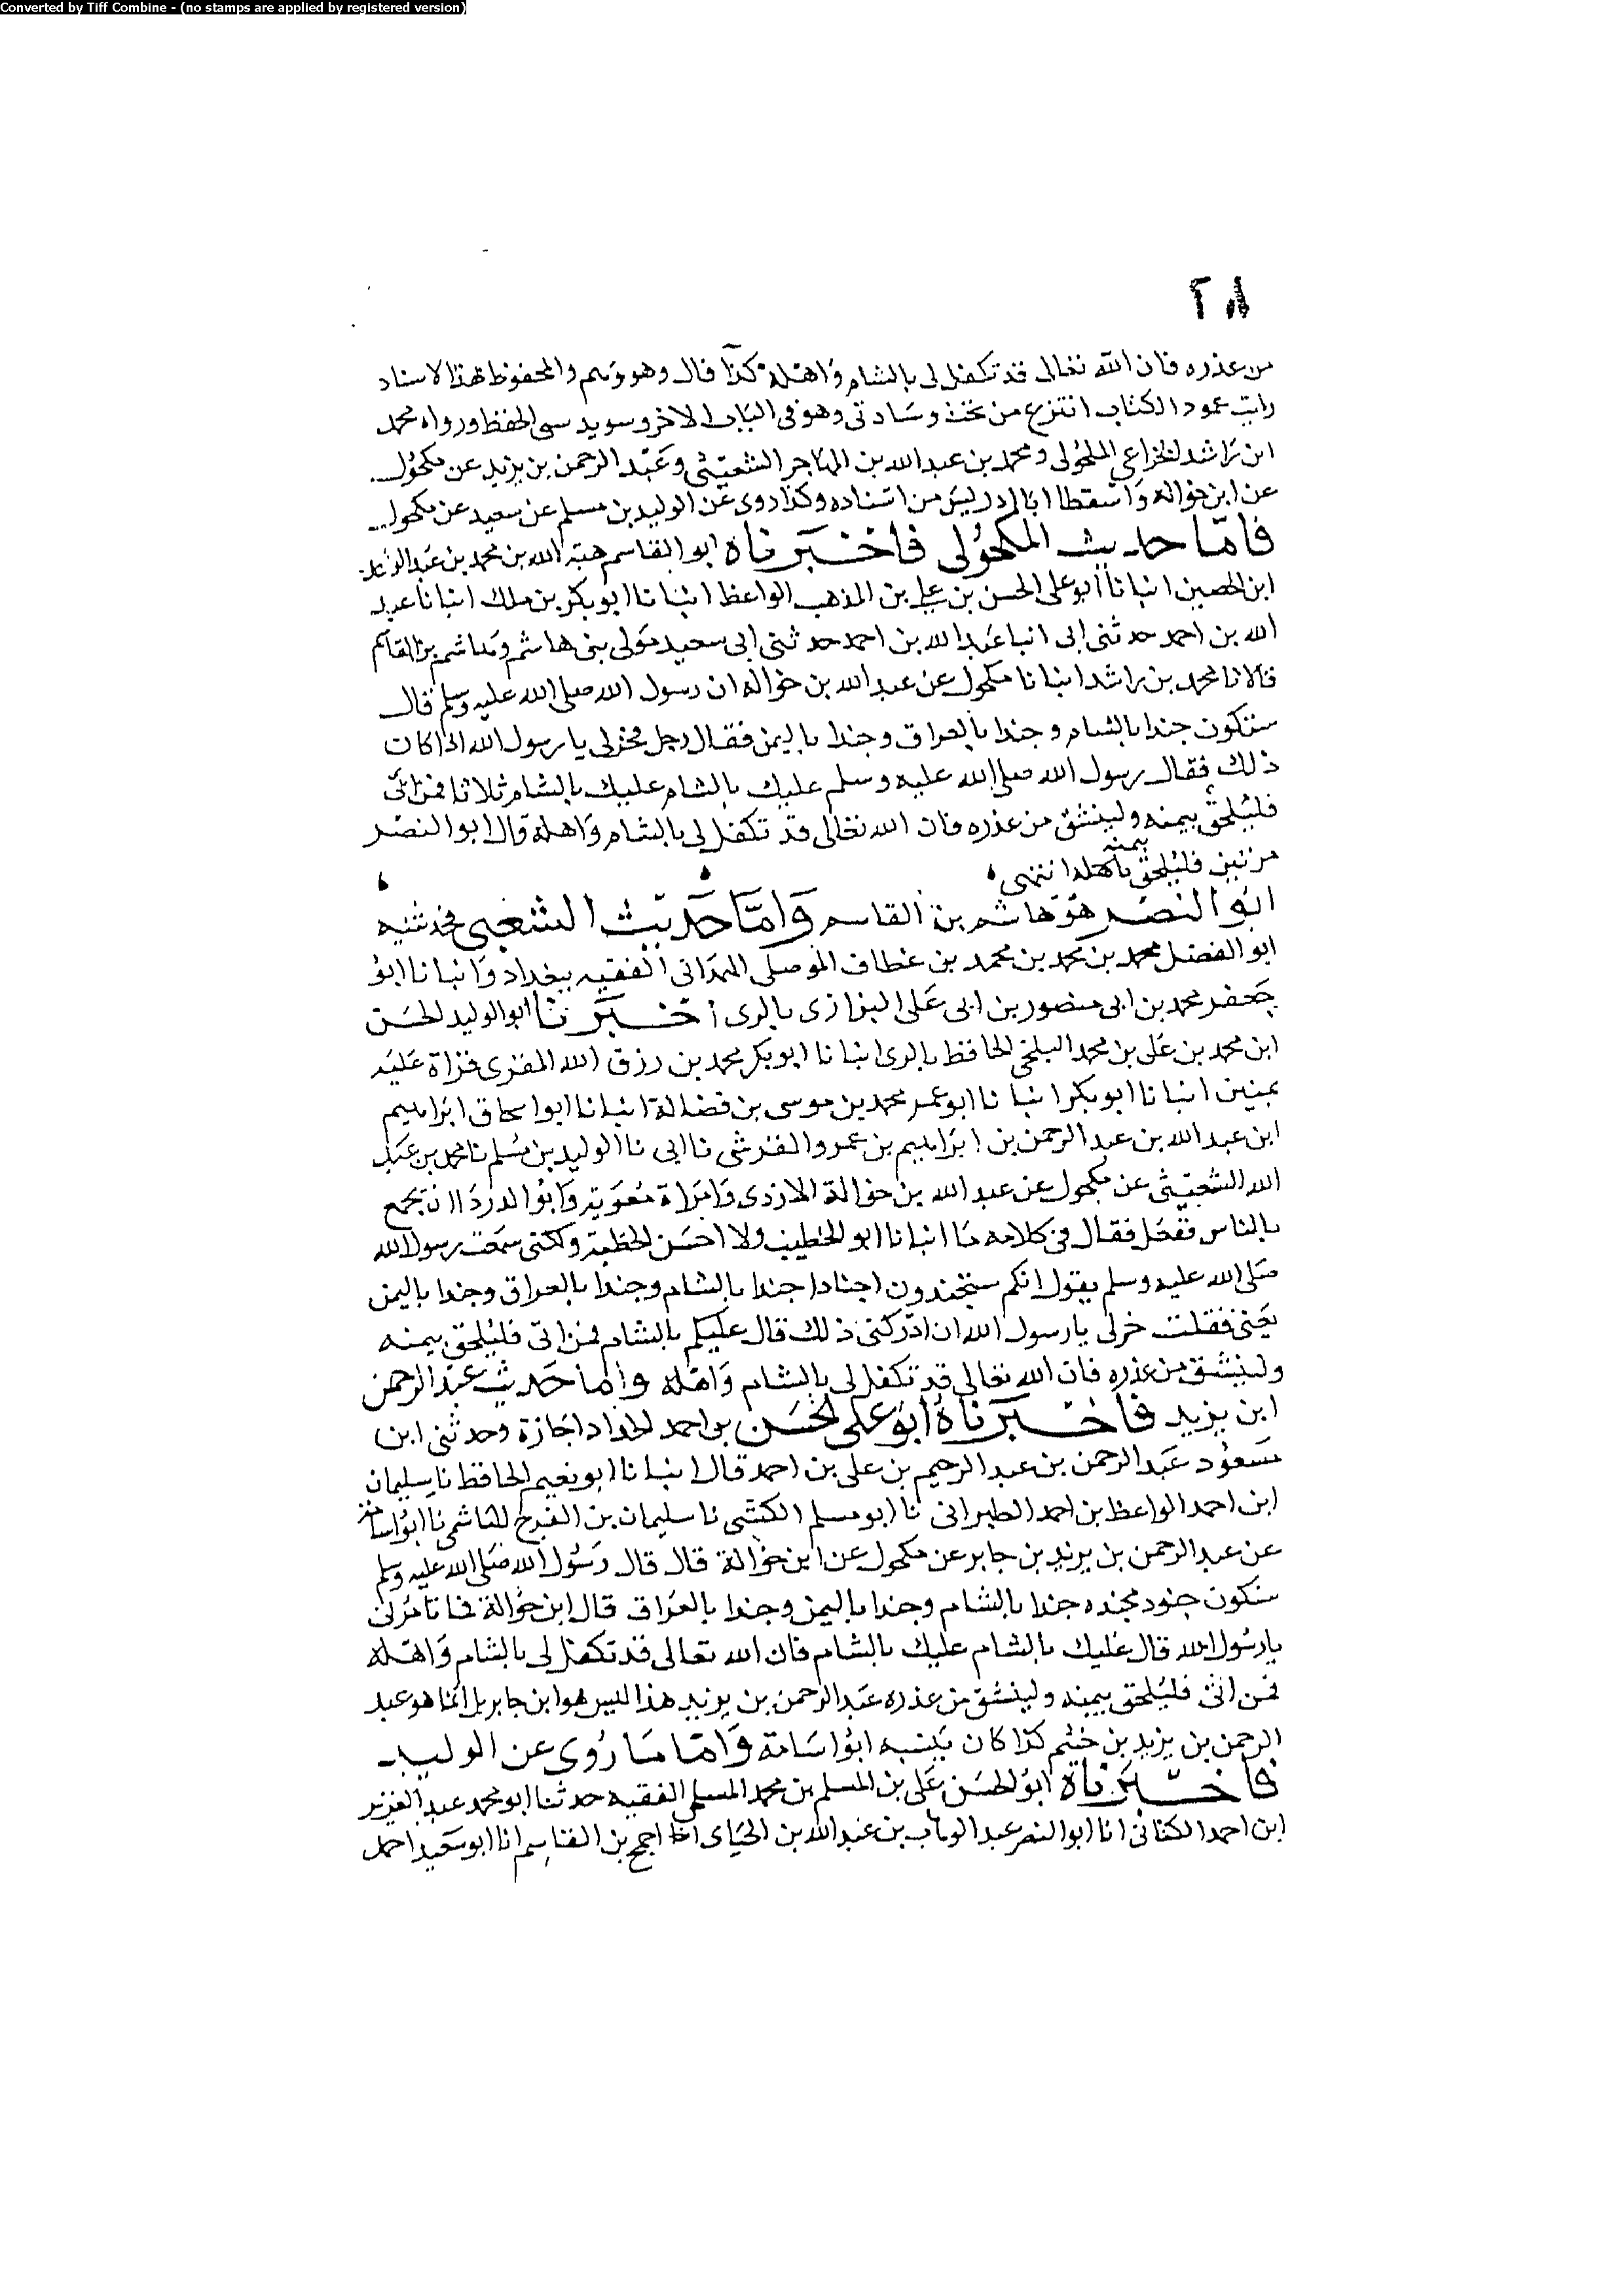 Converted by Tiff Combine - (no stamps are applied by registered version)
٢٨
من عذره فان الله تعالى قد تكفل لى بالشام واهله كذا قال وهو وهم والمحفوظ بهذا الاسناد
رايت عمود الكتاب انتزع من تحت وسادتى وهو فى الباب الاخر وسويد سى الحفظ ورواه محمد
ابن راشد الخزاعى المكحولى ومحمد بن عبد الله بن المهاجر الشعيثى وعبد الرحمن بن يزيد عن مكحول
عن ابن حوالة واسقطا ابا ادريس من اسناده وكذا روى عن الوليد بن مسلم عن سعيد عن مكحول
فاما حديث المكحولى فاخبرناه ابو القاسم هبة الله بن محمد بن عبد الواحد
ابن الحصين انبانا ابو على الحسن بن على بن المذهب الواعظ انبانا ابو بكر بن ملك انبانا عبد
الله بن احمد حدثنى ابى انبا عبد الله بن احمد حدثنى ابى سعيد مولى بنى هاشم وهاشم بن القاسم
قالا نا محمد بن راشد انبانا مكحول عن عبد الله بن حوالة ان رسول الله صلى الله عليه وسلم قال
ستكون جندا بالشام وجندا بالعراق وجندا باليمن فقال رجل فخر لى يا رسول الله اذا كان
ذلك فقال رسول الله صلى الله عليه وسلم عليك بالشام عليك بالشام ثلاثا فمن ابى
فليلحق بيمنه وليستق من عذره فان الله تعالى قد تكفل لى بالشام واهله قال ابو النصر
مرتين فليلحق باهله انتهى
بيمنه
ابو النصر هو هاشم بن القاسم واما حديث الشعيثى فحدثنيه
ابو الفضل محمد بن محمد بن محمد بن عطاف الموصلى الهمدانى الفقيه ببغداد وانبانا ابو
جعفر محمد بن ابى منصور بن ابى على البزازى بالرى اخبرنا ابو الوليد الحسن
ابن محمد بن على بن محمد البلخى الحافظ بالرى انبانا ابو بكر محمد بن رزق الله المقرى قراة عليه
بمنين انبانا ابو بكر انبانا ابو عمر محمد بن موسى بن فضالة انبانا ابو اسحاق ابراهيم
ابن عبد الله بن عبد الرحمن بن ابراهيم بن عمرو القرشى نا ابى نا الوليد بن مسلم نا محمد بن عبد
الله الشعيثى عن مكحول عن عبد الله بن حوالة الازدى وامراة معوية وابو الدرداء ان تجمع
بالناس ففعل فقال فى كلامه ما انبانا ابو الخطيب ولا احسن الخطبة ولكنى سمعت رسول الله
صلى الله عليه وسلم يقول انكم ستجندون اجنادا جندا بالشام وجندا بالعراق وجندا باليمن
يعنى فقلت خر لى يا رسول الله ان ادركنى ذلك قال عليكم بالشام فمن ابى فليلحق بيمنه
وليستق من عذره فان الله تعالى قد تكفل لى بالشام واهله واما حديث عبد الرحمن
ابن يزيد فاخبرناه ابو على الحسن بن احمد الحداد اجازة وحدثنى ابن
مسعود عبد الرحمن بن عبد الرحيم بن على بن احمد قال انبانا ابو نعيم الحافظ نا سليمان
ابن احمد الواعظ بن احمد الطبرانى نا ابو مسلم الكشى نا سليمان بن الفرج الهاشمى نا ابو اسامة
عن عبد الرحمن بن يزيد بن جابر عن مكحول عن ابن حوالة قال قال رسول الله صلى الله عليه وسلم
ستكون جنود مجنده جندا بالشام وجندا باليمن وجندا بالعراق قال ابن حوالة فما تامرنى
يا رسول الله قال عليك بالشام عليك بالشام فان الله تعالى قد تكفل لى بالشام واهله
فمن ابى فليلحق بيمنه وليستق من عذره عبد الرحمن بن يزيد هذا ليس هو ابن جابر بل انما هو عبد
الرحمن بن يزيد بن خثم كذا كان ينسبه ابو اسامة واما ما روى عن الوليد
فاخبرناه ابو الحسن على بن المسلم بن محمد السلمى الفقيه حدثنا ابو محمد عبد العزيز
ابن احمد الكتانى انا ابو النصر عبد الوهاب بن عبد الله بن بن القاسم انا ابو سعيد احمد